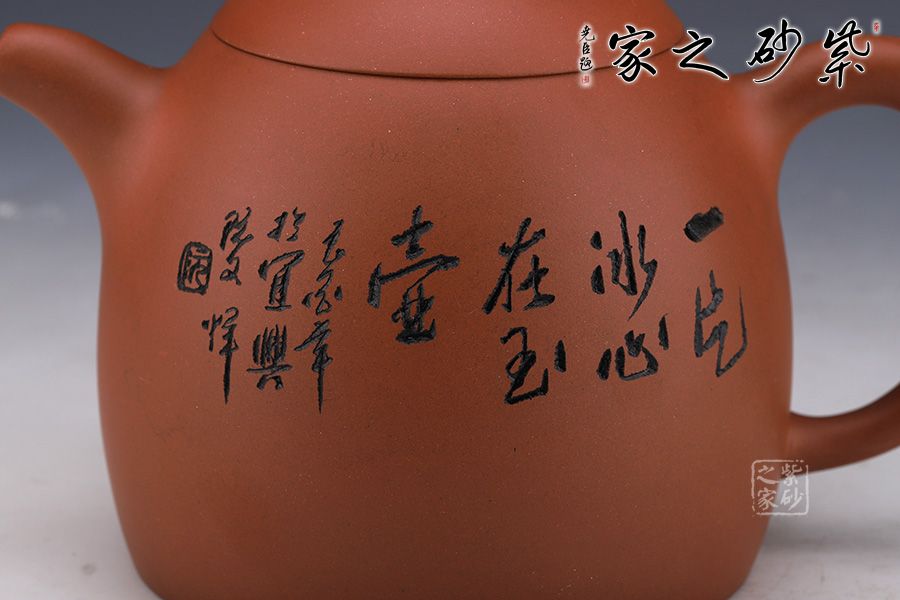 紫砂之家
堯臣題
一片
冰心
在玉
壺
年
於宜興
紫砂
之家